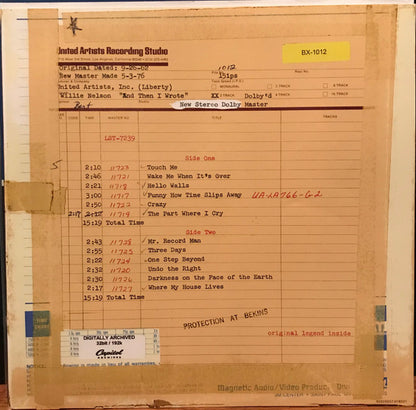 United Artists Recording Studio
BX-1012
Original Dated: 9-26-62
1012
New Master Made 5-3-76
15ips
United Artists, Inc. (Liberty)
Willie Nelson "And Then I Wrote"
XX
Dolby'd
Best
New Stereo Dolby Master
CODE TIME MASTER NO. TITLE
LST-7239
Side One
2:10 11723 Touch Me
2:46 11721 Wake Me When It's Over
2:21 11718 Hello Walls
3:00 11717 Funny How Time Slips Away UA-LA766-G-2
2:50 11722 Crazy
2:17 2:12 11719 The Part Where I Cry
15:19 Total Time
Side Two
2:43 11728 Mr. Record Man
2:55 11725 Three Days
2:22 11724 One Step Beyond
2:32 11720 Undo the Right
2:30 11726 Darkness on the Face of the Earth
2:17 11727 Where My House Lives
15:19 Total Time
PROTECTION AT BEKINS
original legend inside
DIGITALLY ARCHIVED
32bit / 192k
Capitol
NOTICE:
Magnetic Audio/Video Products Div
3M CENTER • SAINT PAUL